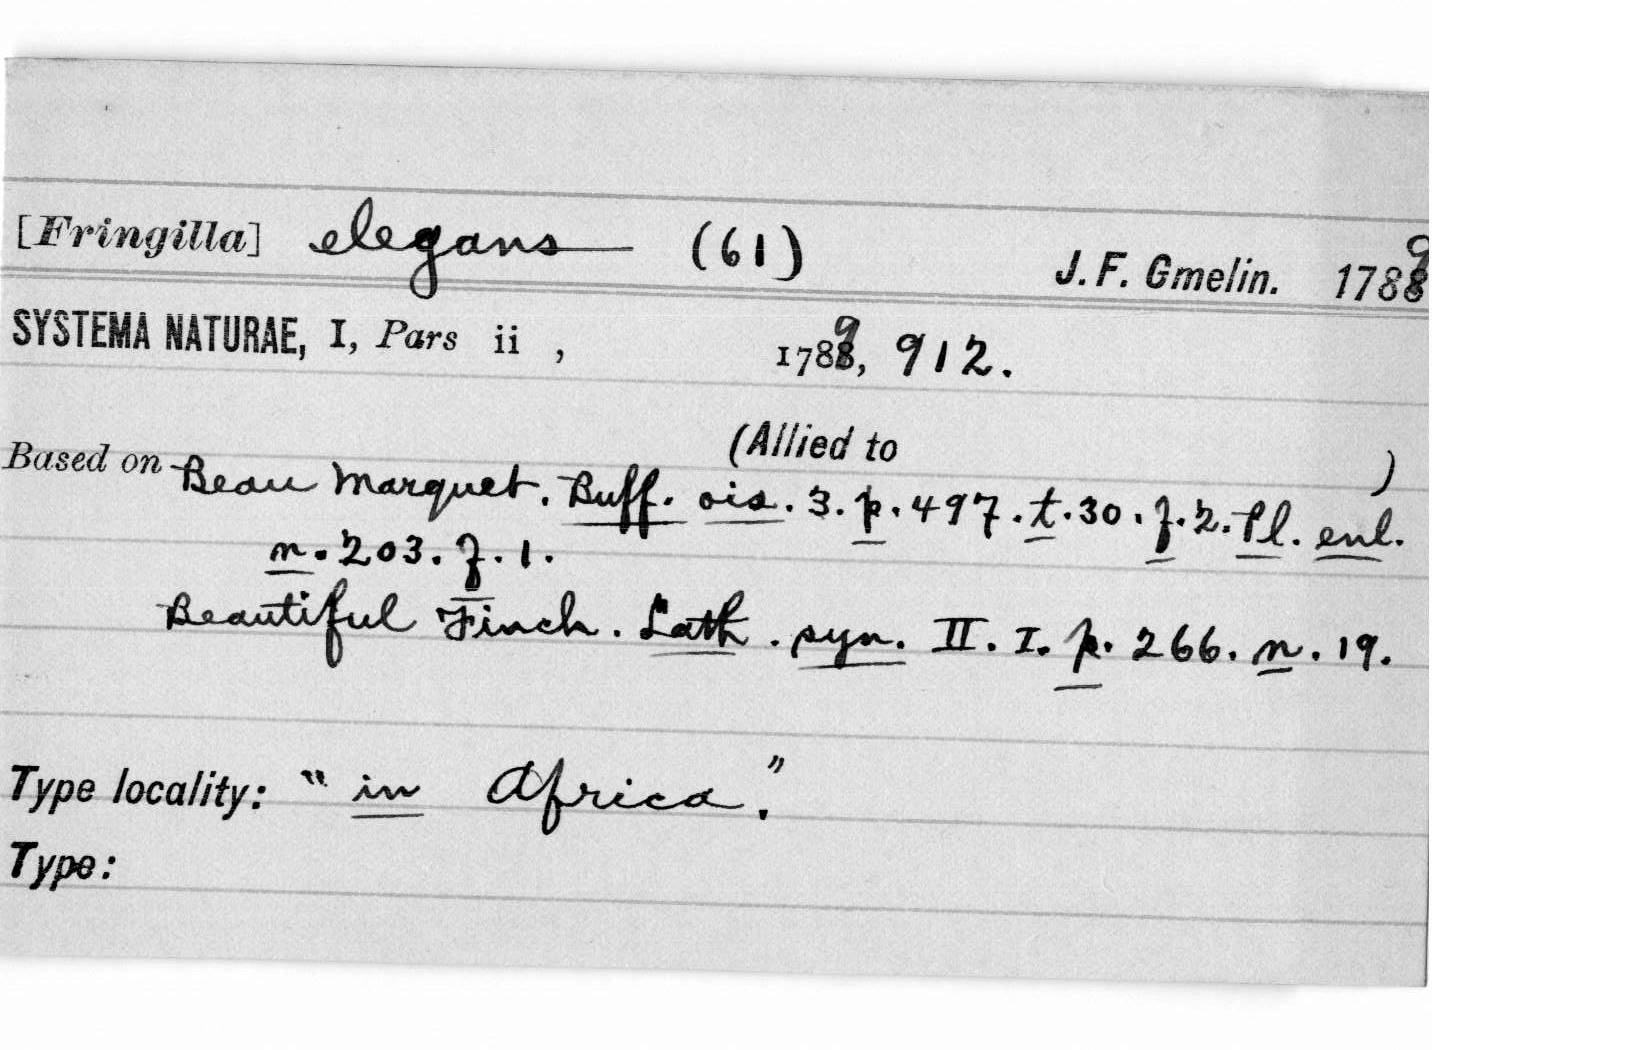 [Fringilla] elegans (61) J. F. Gmelin. 1789
SYSTEMA NATURAE, I, Pars ii , 1789, 912.
(Allied to )
Based on Beau Marquet. Buff. ois. 3. p. 497. t. 30. f. 2. Pl. enl.
n. 203. f. 1.
Beautiful Finch. Lath. syn. II. I. p. 266. n. 19.
Type locality: "in Africa."
Type: